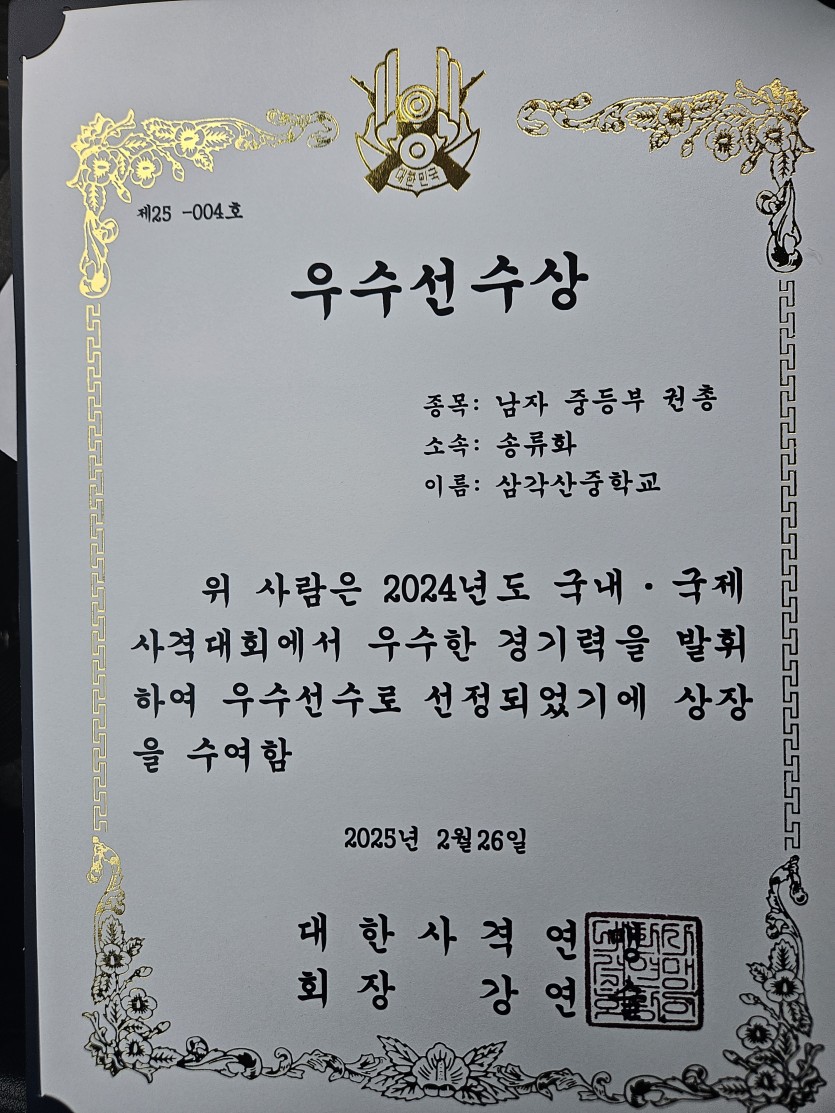 대한민국
제25 -004호
우수선수상
종목: 남자 중등부 권총
소속: 송류화
이름: 삼각산중학교
위 사람은 2024년도 국내·국제
사격대회에서 우수한 경기력을 발휘
하여 우수선수로 선정되었기에 상장
을 수여함
2025년 2월26일
대한사격연맹
회장 강연술